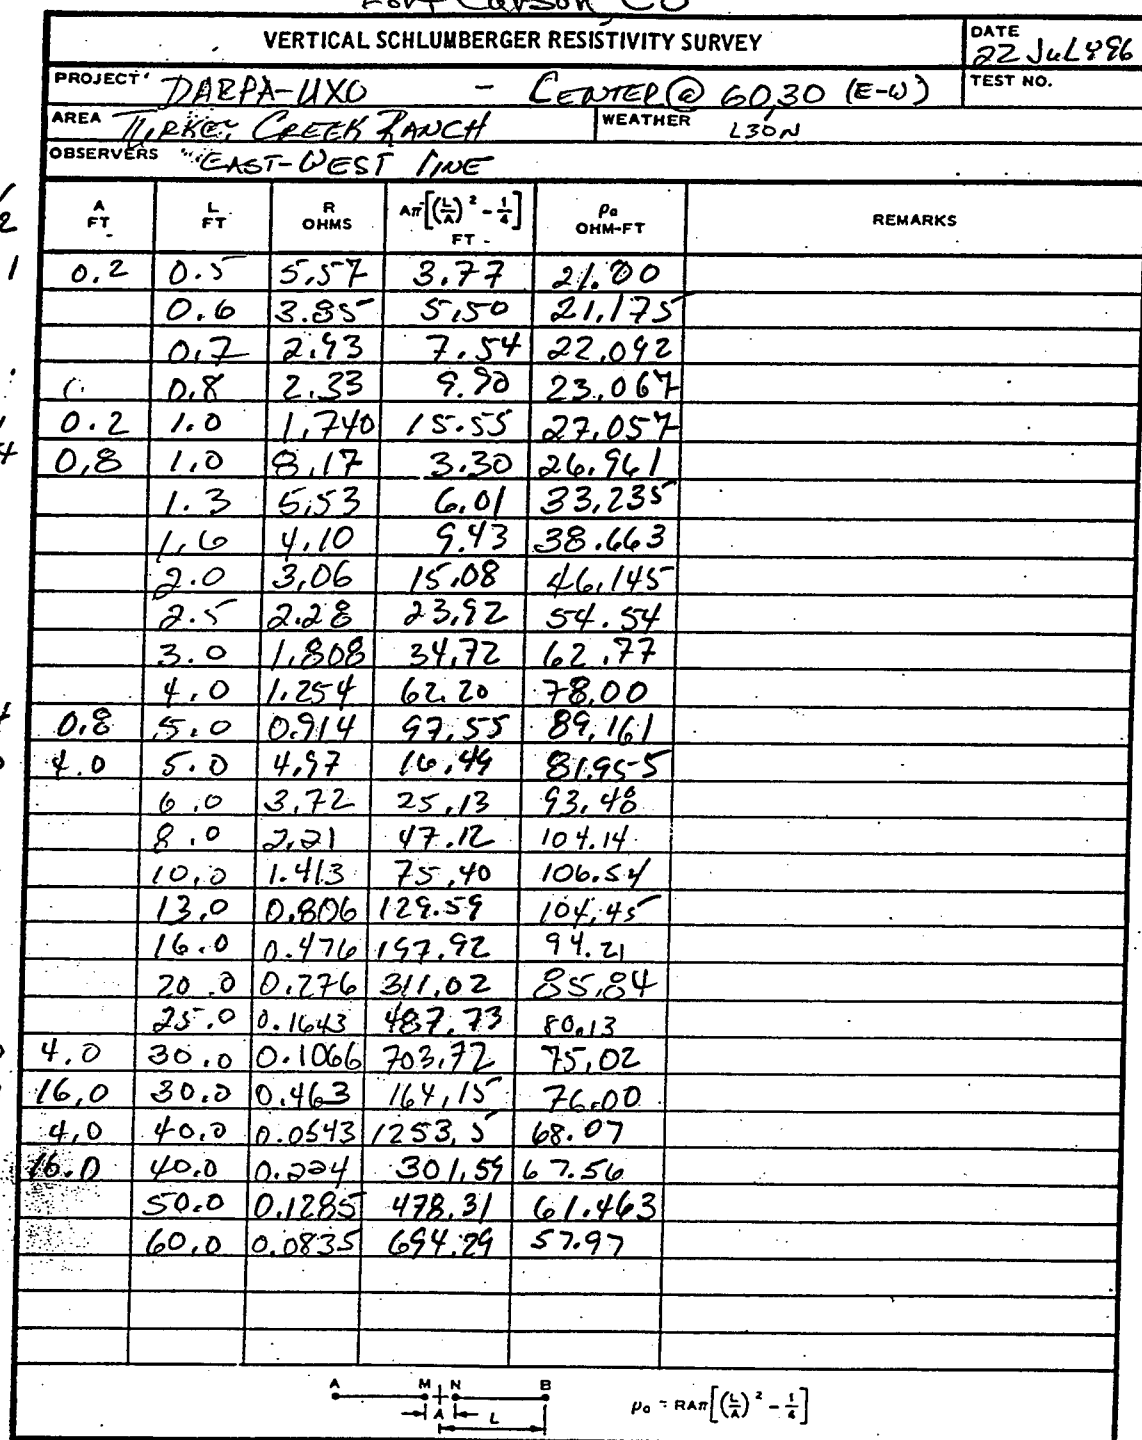 Fort Carson, CO
VERTICAL SCHLUMBERGER RESISTIVITY SURVEY
DATE
22 JuL 96
PROJECT DARPA-UXO - CENTER @ 60,30 (E-W)
TEST NO.
AREA TURKEY CREEK RANCH
WEATHER L30N
OBSERVERS EAST-WEST LINE
A FT L FT R OHMS Aπ[(L/A)² - 1/4] FT ρa OHM-FT REMARKS
0.2 0.5 5.57 3.77 21.00
0.6 3.85 5.50 21.175
0.7 2.93 7.54 22.092
0.8 2.33 9.90 23.067
0.2 1.0 1.740 15.55 27.057
0.8 1.0 8.17 3.30 26.961
1.3 5.53 6.01 33.235
1.6 4.10 9.43 38.663
2.0 3.06 15.08 46.145
2.5 2.28 23.92 54.54
3.0 1.808 34.72 62.77
4.0 1.254 62.20 78.00
0.8 5.0 0.914 97.55 89.161
4.0 5.0 4.97 16.49 81.955
6.0 3.72 25.13 93.48
8.0 2.21 47.12 104.14
10.0 1.413 75.40 106.54
13.0 0.806 129.59 104.45
16.0 0.476 197.92 94.21
20.0 0.276 311.02 85.84
25.0 0.1643 487.73 80.13
4.0 30.0 0.1066 703.72 75.02
16.0 30.0 0.463 164.15 76.00
4.0 40.0 0.0543 1253.5 68.07
16.0 40.0 0.224 301.59 67.56
50.0 0.1285 478.31 61.463
60.0 0.0835 694.29 57.97
A M N B
A L
ρa = RAπ[(L/A)² - 1/4]